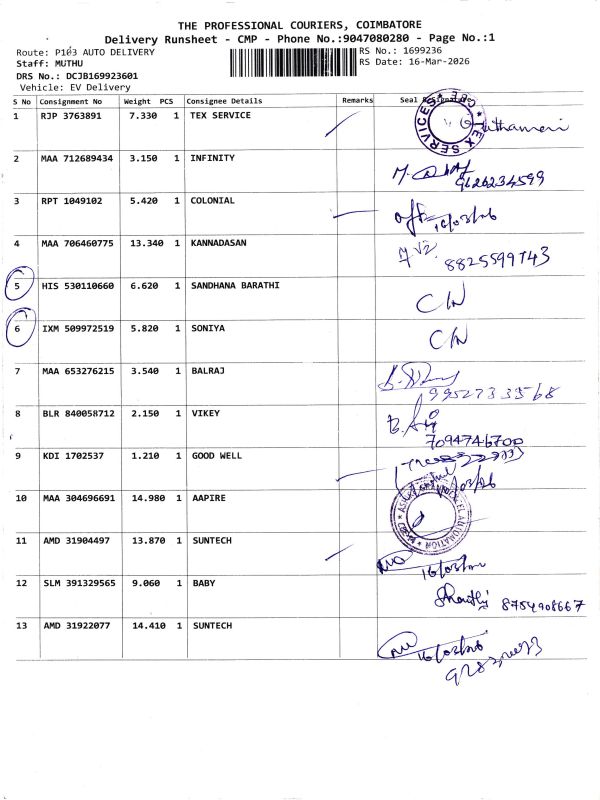 THE PROFESSIONAL COURIERS, COIMBATORE
Delivery Runsheet - CMP - Phone No.:9047080280 - Page No.:1
Route: P103 AUTO DELIVERY
RS No.: 1699236
Staff: MUTHU
RS Date: 16-Mar-2026
DRS No.: DCJB169923601
Vehicle: EV Delivery
S No Consignment No Weight PCS Consignee Details Remarks Seal
1 RJP 3763891 7.330 1 TEX SERVICE
TEX SERVICES
2 MAA 712689434 3.150 1 INFINITY
9626234599
3 RPT 1049102 5.420 1 COLONIAL
16/03/26
4 MAA 706460775 13.340 1 KANNADASAN
8825599743
5 HIS 530110660 6.620 1 SANDHANA BARATHI C/N
6 IXM 509972519 5.820 1 SONIYA C/N
7 MAA 653276215 3.540 1 BALRAJ
9952733568
8 BLR 840058712 2.150 1 VIKEY
7094746700
9 KDI 1702537 1.210 1 GOOD WELL
10 MAA 304696691 14.980 1 AAPIRE
AUTOMATION
11 AMD 31904497 13.870 1 SUNTECH
12 SLM 391329565 9.060 1 BABY
8754908667
13 AMD 31922077 14.410 1 SUNTECH
16/03/26